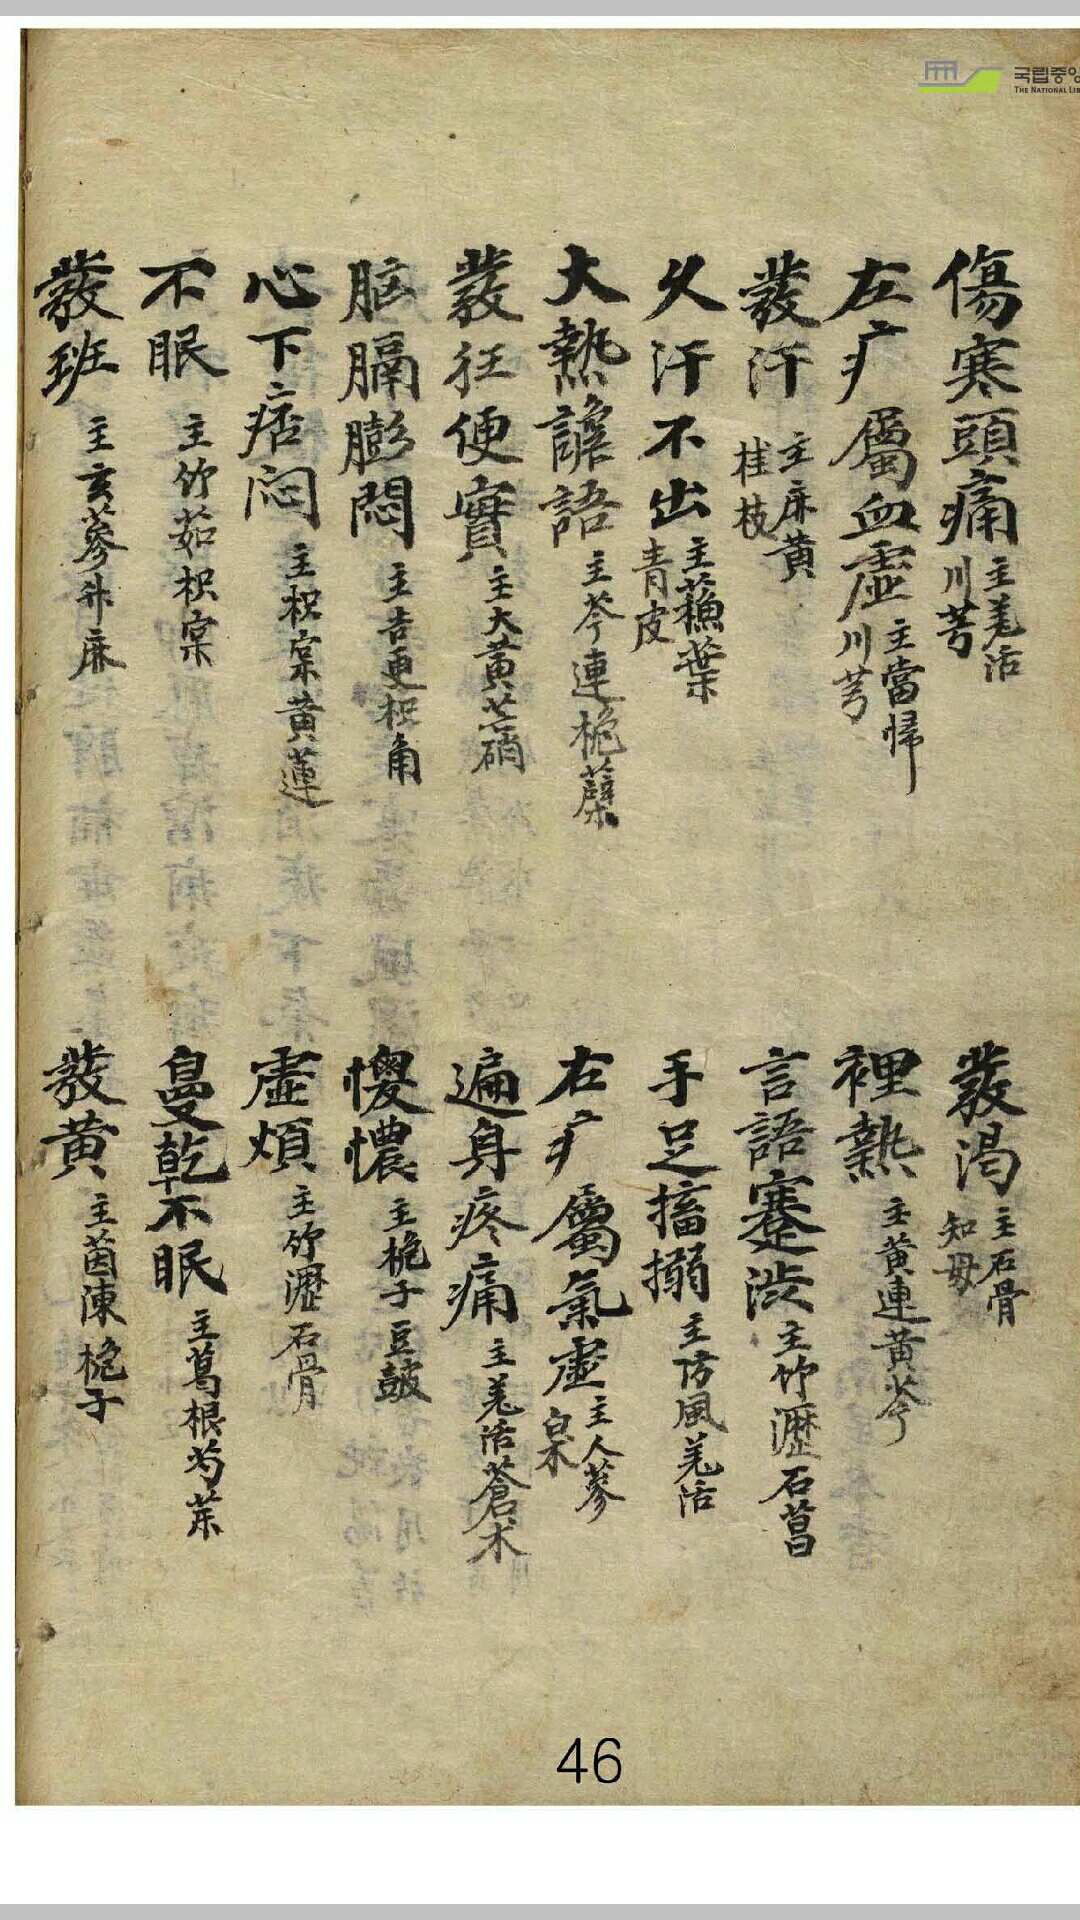 国립중앙
THE NATIONAL LIB
傷寒頭痛 主羌活 川芎
左疒屬血虛 主當歸 川芎
發汗 主麻黃 桂枝
久汗不出 主蘓葉 青皮
大熱譫語 主芩連梔蘗
發狂便實 主大黃芒硝
胸膈膨悶 主吉更枳角
心下痞悶 主枳宲黃連
不眠 主竹茹枳宲
發班 主玄蔘升麻
發渴 主石膏 知母
裡熱 主黃連黃芩
言語蹇澁 主竹瀝石菖
手足搐搦 主防風羌活
右疒屬氣虛 主人蔘 白朮
遍身疼痛 主羌活蒼朮
懊憹 主梔子豆豉
虛煩 主竹瀝石膏
鼻乾不眠 主葛根芍藥
發黃 主茵陳梔子
46